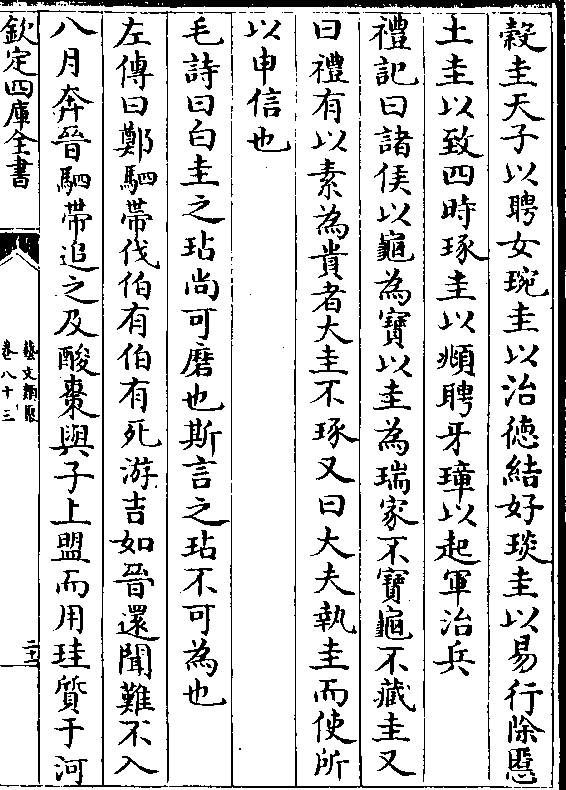 糓圭天子以聘女琬圭以治徳結好琰圭以易行除慝
土圭以致四時琢圭以頫聘牙璋以起軍治兵
禮記曰諸侯以龜為寶以圭為瑞家不寶龜不藏圭又
曰禮有以素為貴者大圭不琢又曰大夫執圭而使所
以申信也
毛詩曰白圭之玷尚可磨也斯言之玷不可為也
左傳曰鄭駟帶伐伯有伯有死游吉如晉還聞難不入
八月奔晉駟帶追之及酸棗與子上盟而用珪質于河
欽定四庫全書
藝文類聚
卷八十三
二十二